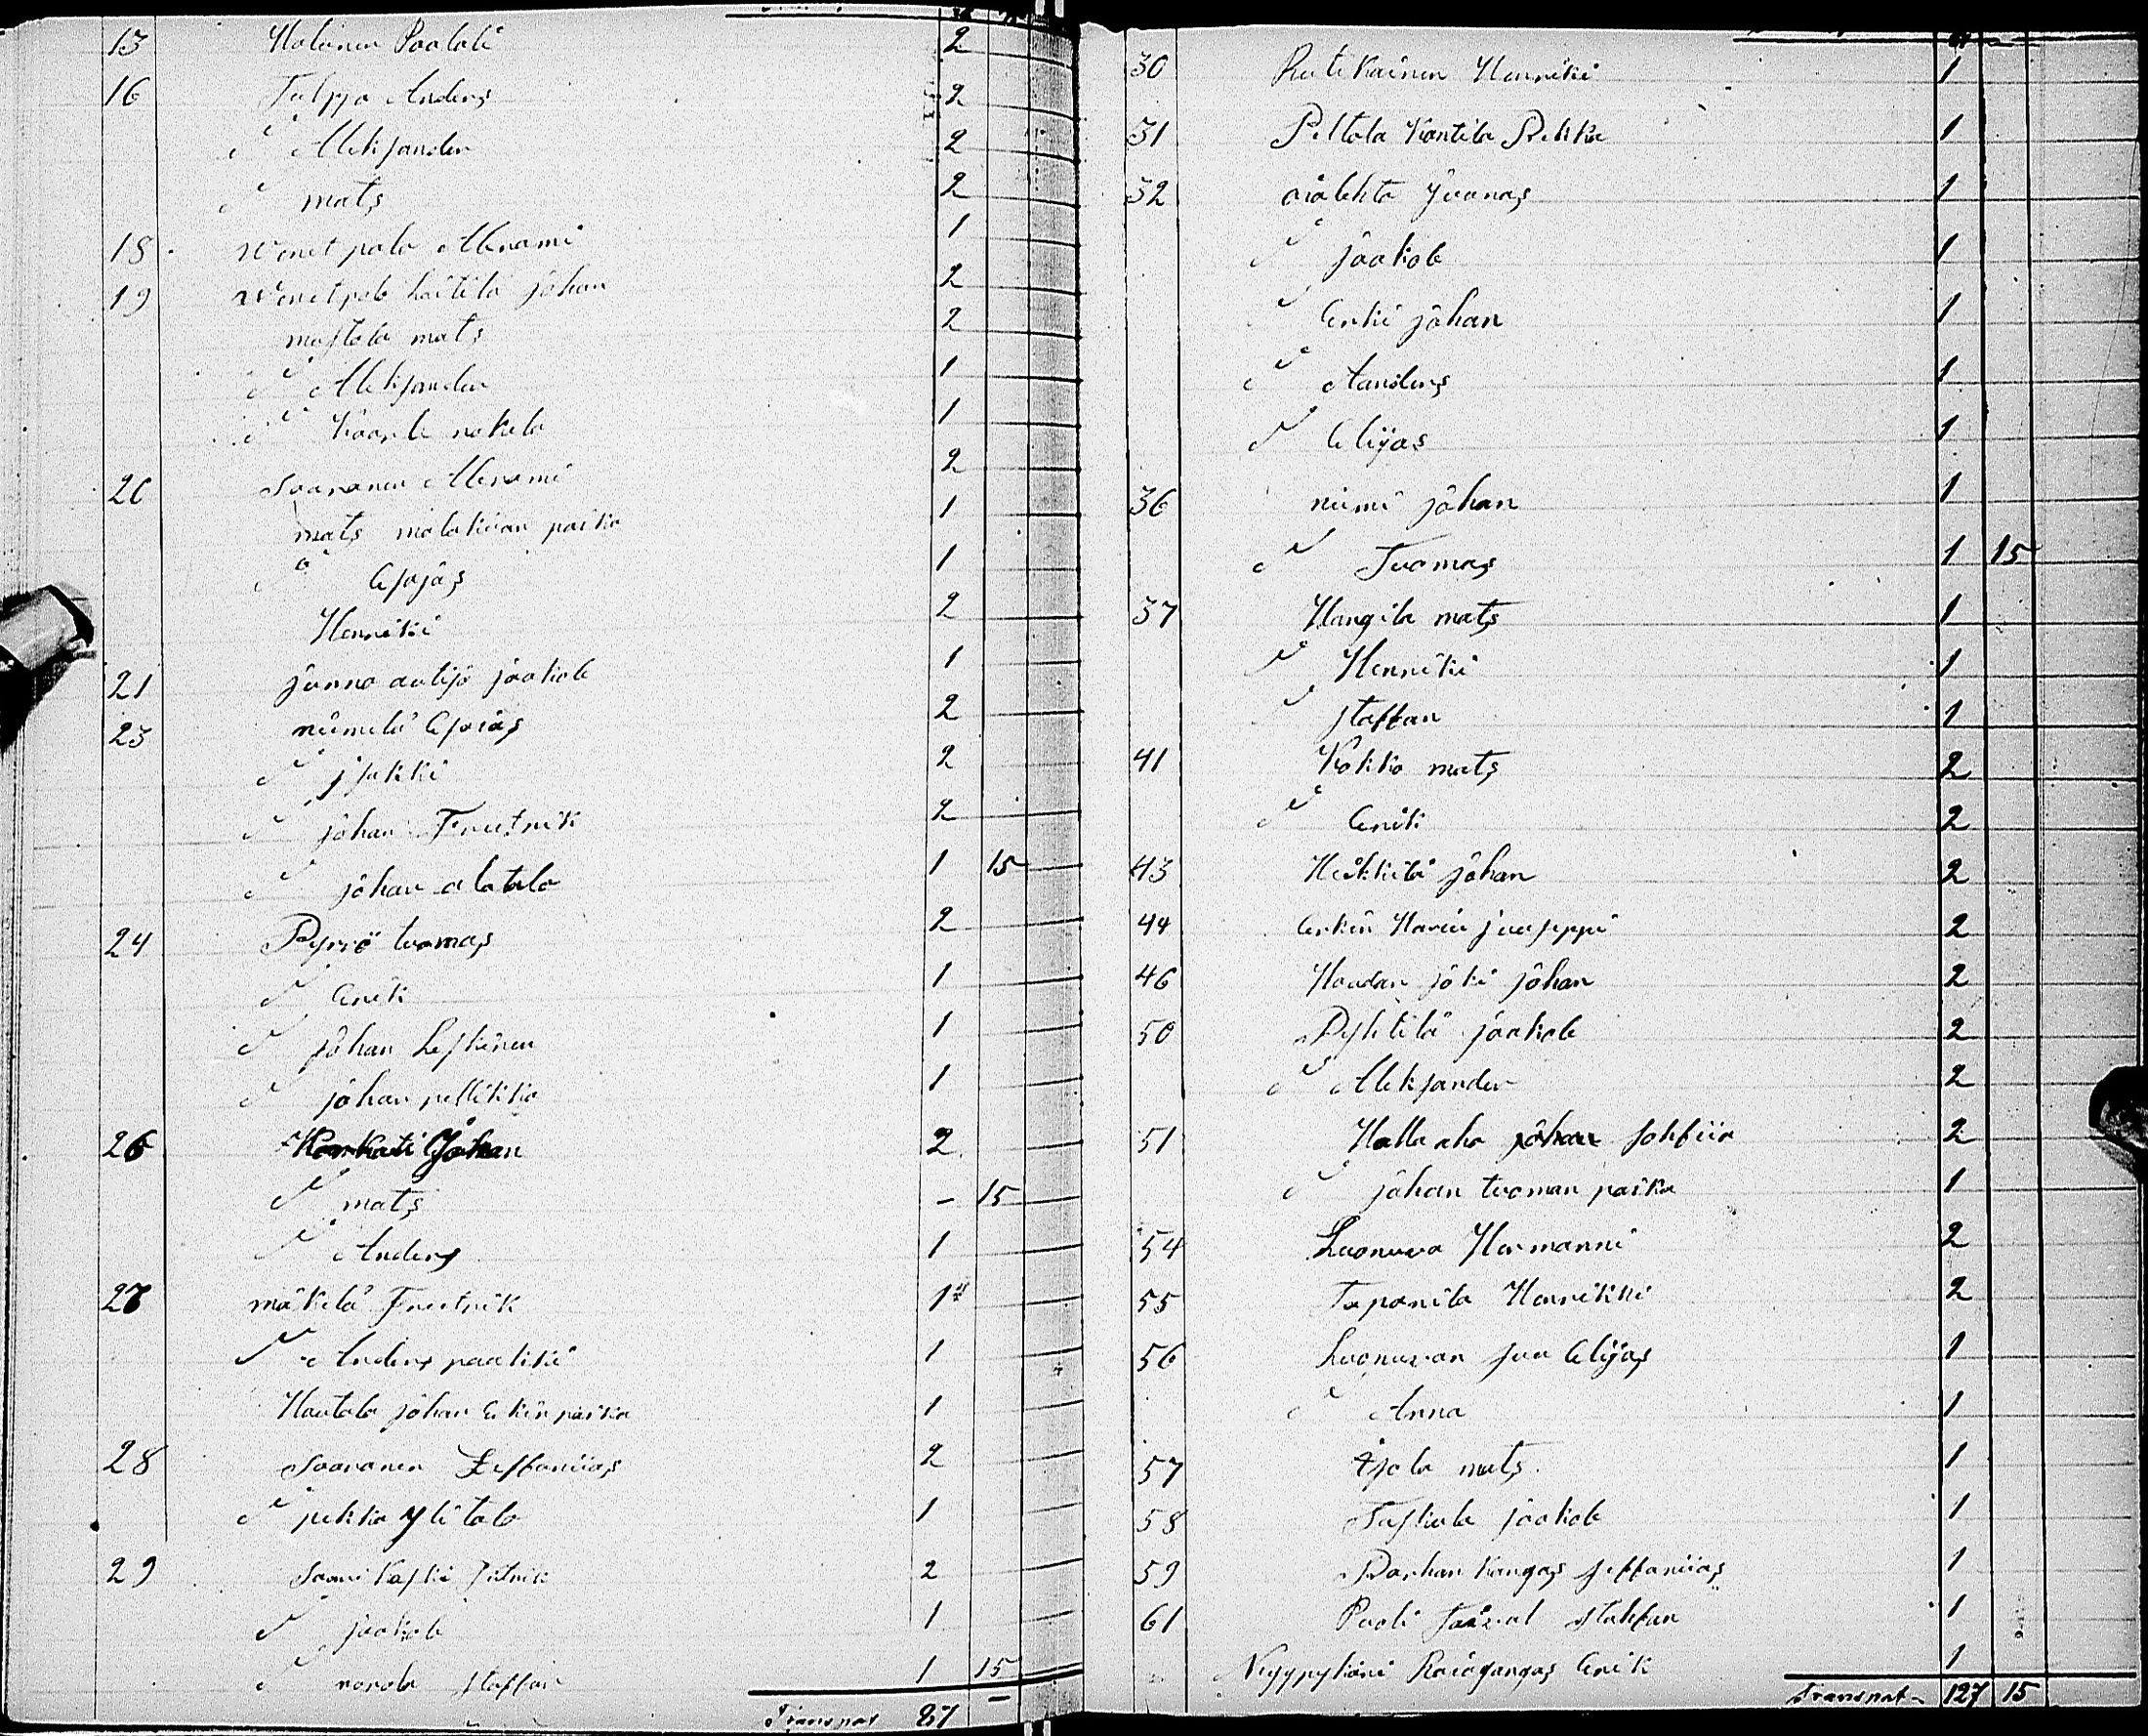 13 Halonen Paalali 2
16 Tulppo Anders 2
Aleksander 2
mats 2
18 Wenet palo Abrami 1
19 Wenet palo haitila johan 2
mastola mats 2
Aleksander 1
Kaarle nokela 1
20 Saaranen Abrami 2
mats malakiian paikka 1
Esajas 1
Hennriki 2
21 junno autijo jaakob 1
23 niimelä Esaias 2
jsakki 2
johan Freetrik 2
johan alatalo 1 15
24 Pyriö tuomas 2
Eerik 1
johan Leskinen 1
johan pellikka 1
26 Johan 2
mats – 15
Anders 1
27 mäkelä Freetrik 1
Anders paakki 1
Hautala johan Erkin paikka 1
28 Saaranen Seffaniias 2
pekka ylitalo 1
29 Saarikoski 2
jaakob 1
staffan 1 15
Transport 87 –
30 Rutikainen Hennriki 1
31 Peltola Kantila Pekka 1
32 aialehto Juonas 1
jaakob 1
Erkki johan 1
Aanders 1
Elijas 1
36 niemi johan 1
Tuomas 1 15
37 Hangila mats 1
Hennriki 1
staffan 1
41 Kokko mats 2
Eerik 2
43 Heikkilä johan 2
44 Erkin Harju juuseppi 2
46 Haudan joki johan 2
50 Pyhtilä jaakob 2
Aleksander 2
51 Halla aho johan sohfiia 2
johan tuoman paikka 1
54 Luonuva Hermanni 2
55 Tapanila Henrikki 2
56 Luonuvan suu Elijas 1
Anna 1
57 Ajala mats 1
58 Taskula jaakob 1
59 Parhan kangas seffaniias 1
61 Puoli taival stahfan 1
Raiagangas Eerik 1
Transport 127 15